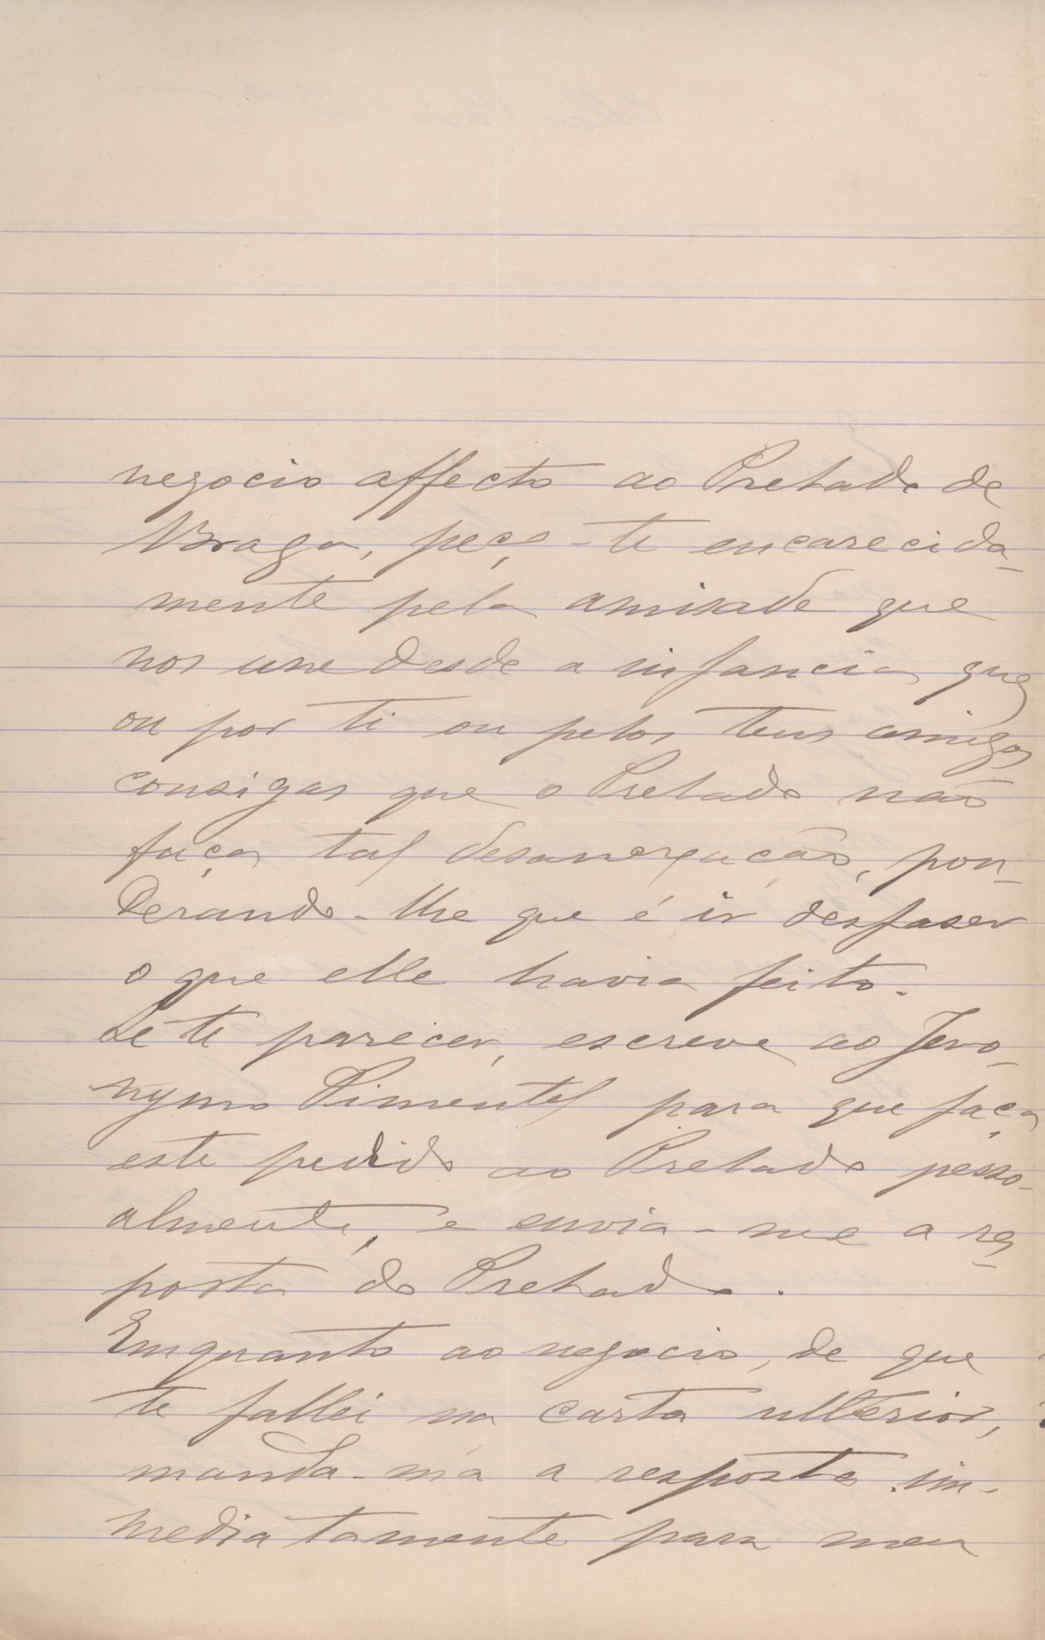 negocio affecto ao Prelado de
Braga, peço-te encarecida-
mente pela amisade que
nos une desde a infancia que
ou por ti ou pelos teus amigos
consigas que o Prelado não
faça tal desanexação, pon-
derando-lhe que é ir desfaser
o que elle havia feito.
Se te parecer, escreve ao Jero-
nymo Pimentel para que faça
este pedido ao Prelado pesso-
almente, e envia-me a res-
posta do Prelado.
Emquanto ao negocio, de que
te fallei na carta ulterior,
manda-má a resposta im-
mediatamente para meu